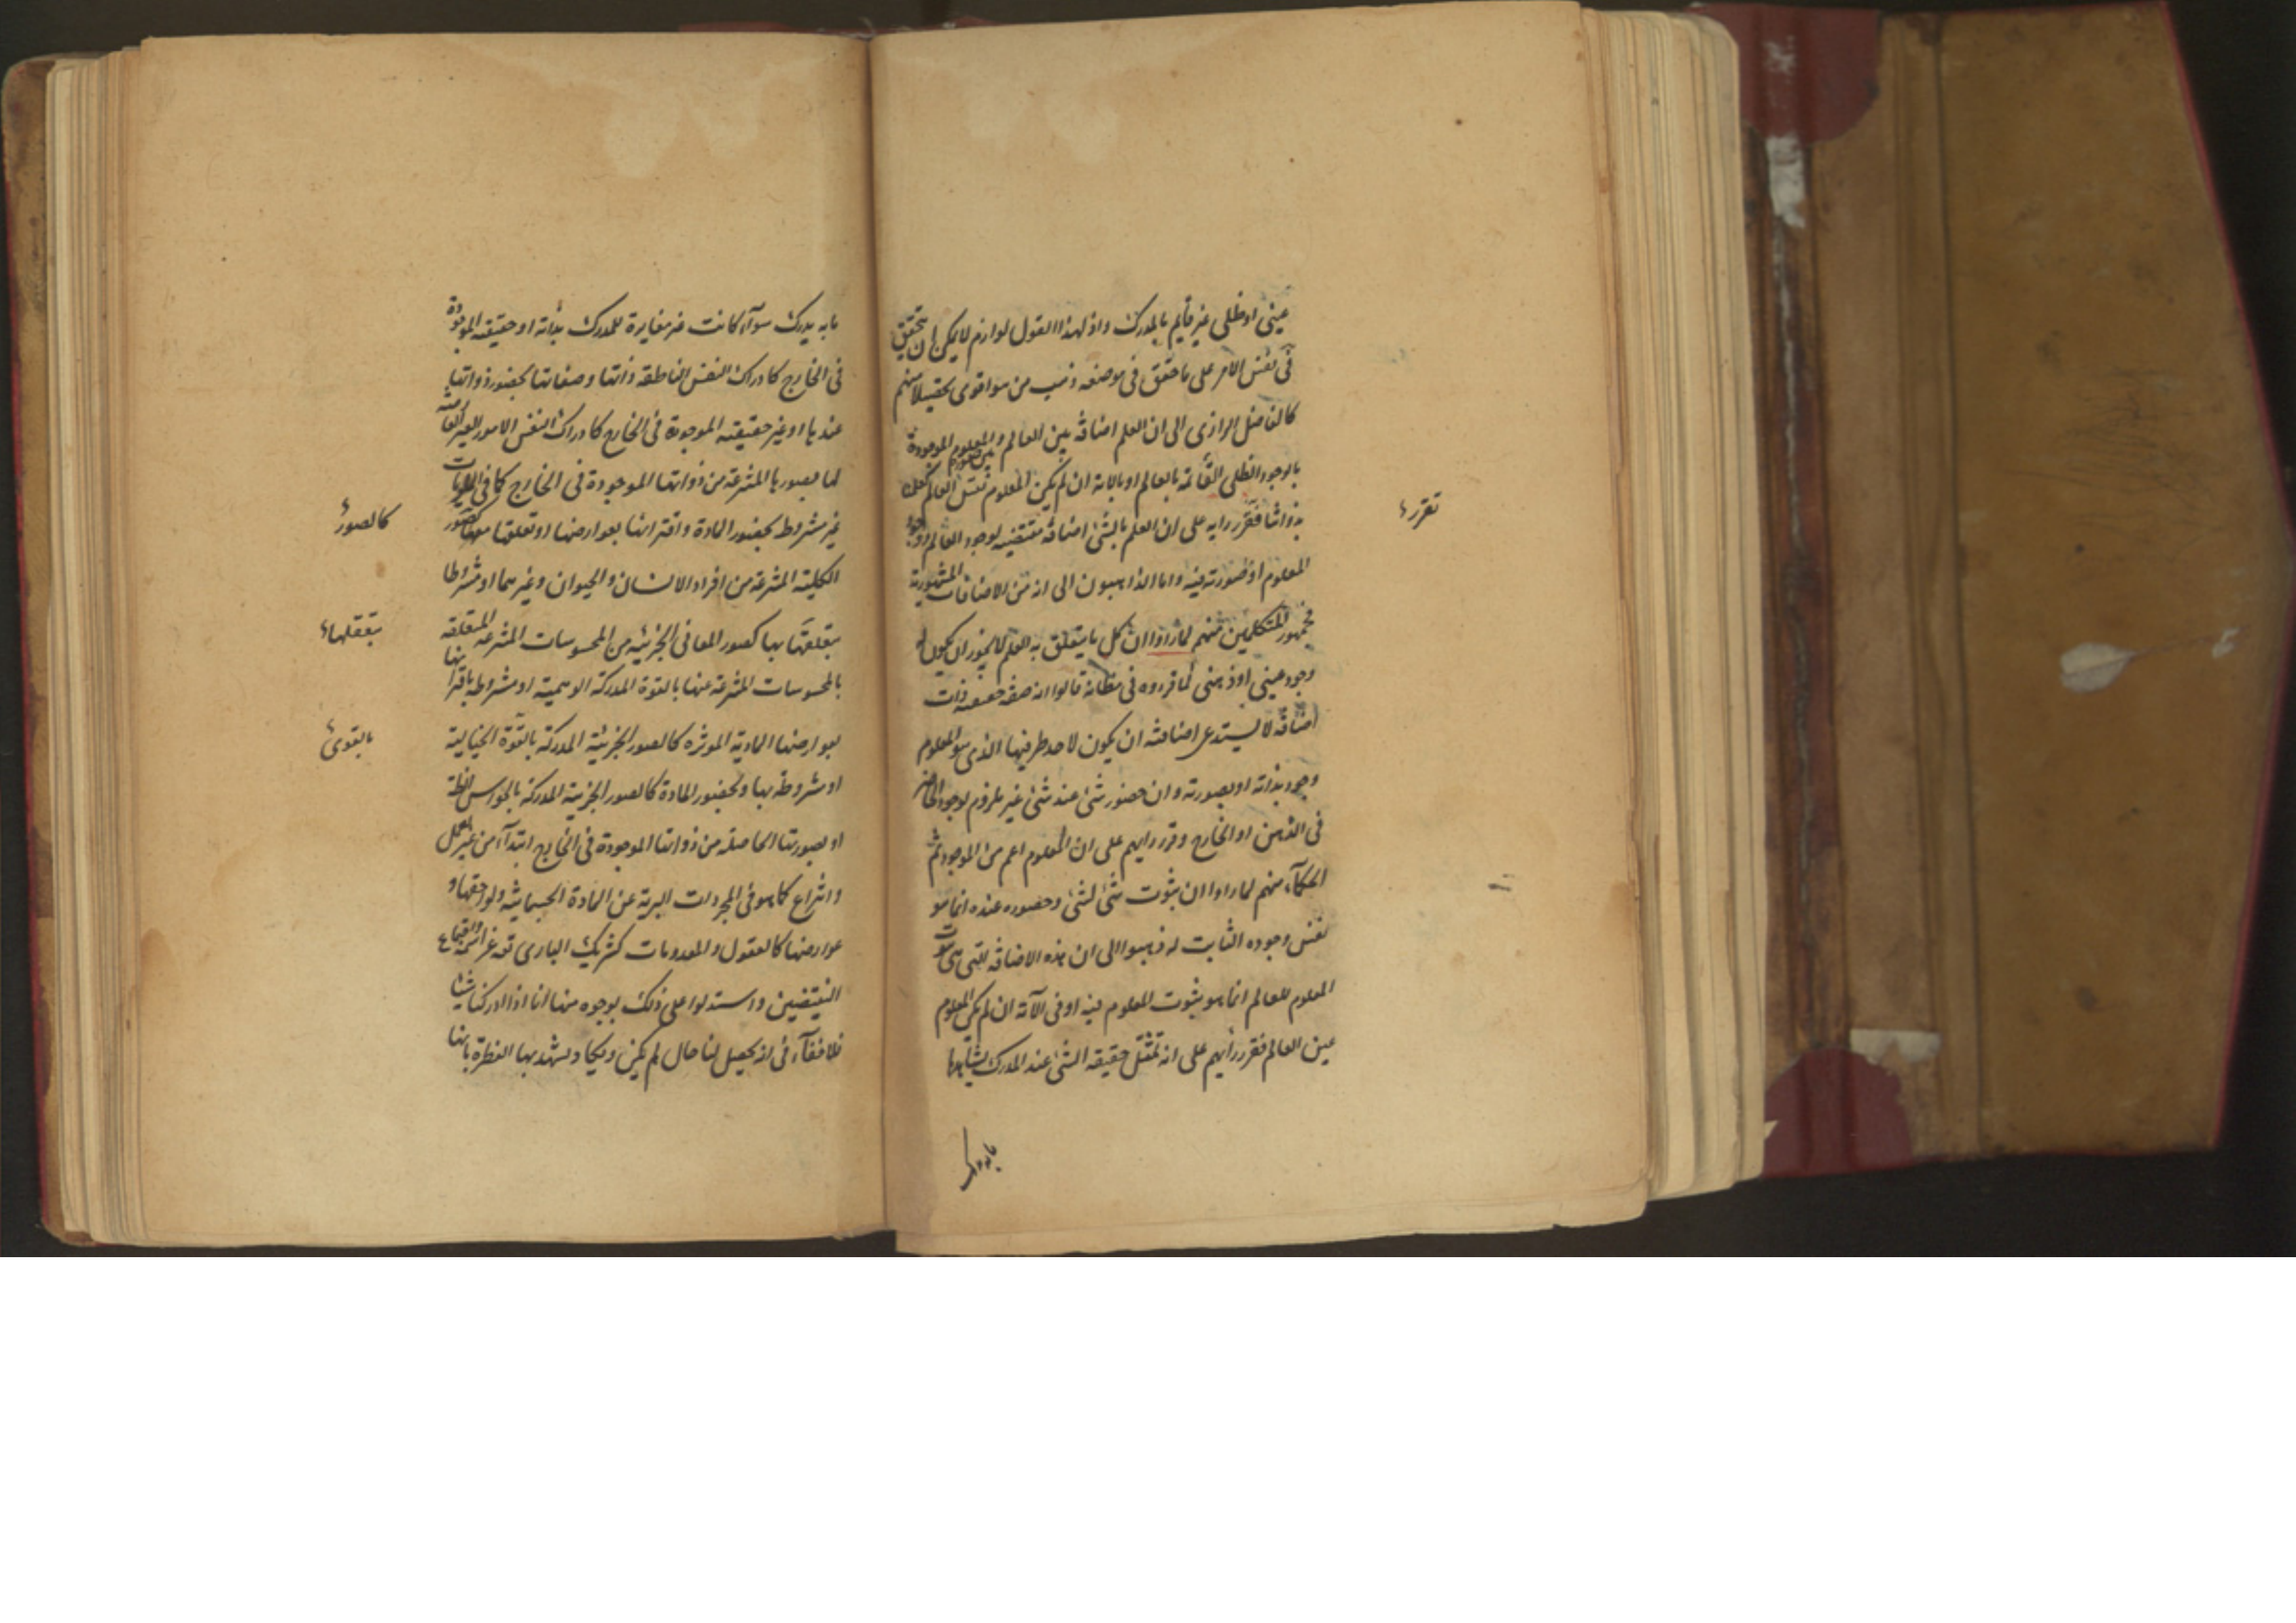 عيني او ظلي غير قايم بالمدرك واذ لهذا القول لوازم لا يمكن ان يتحقق
في نفس الامر على ما حقق في موضعه ذهب من هو اقوى تحصيلا منهم
كالفاضل الرازي الى ان العلم اضافة بين العالم والمعلوم الموجودة
بالوجود الظلي القائمة بالعالم او بالاته ان لم يكن المعلوم
بذواتنا فتقرر رايه على ان العلم بالشئ اضافة مقتضية لوجود العالم ووجود
المعلوم او صورته فيه واما الذاهبون الى انه من الاضافات المشهورية
فجمهور المتكلمين منهم لما راوا ان كل ما يتعلق به العلم لا يجوز ان يكون له
وجود عيني او ذهني لما قرروه في مظانه قالوا انه صفة حقيقية ذات
اضافة لا يستدعي اضافته ان يكون لاحد طرفيها الذي هو المعلوم
وجود بذاته او بصورته وان حضور شئ عند شئ غير ملزوم لوجود الحاضر
في الذهن او الخارج وقرر رايهم على ان المعلوم اعم من الموجود ثم
الحكماء منهم لما راوا ان ثبوت شئ لشئ وحضوره عنده انما هو
نفس وجوده الثابت له ذهبوا الى ان هذه الاضافة التي هي ثبوت
المعلوم للعالم انما هو بثبوت المعلوم فيه او في الآته ان لم يكن المعلوم
عين العالم فتقرر رأيهم على انه تمثل حقيقة الشئ عند المدرك يشاهدها
تقرر
ما به يدرك
ما به يدرك سوآء كانت غير مغايرة للمدرك بذاته او حقيقته الموجودة
في الخارج كادراك النفس الناطقة ذاتها وصفاتها بحضور ذواتها
عندها او غير حقيقته الموجودة في الخارج كادراك النفس الامور الغير القائمة
لها بصورها المنتزعة من ذواتها الموجودة في الخارج كما في الماديات
غير مشروط بحضور المادة واقترانها بعوارضها او تعلقها بها كصور
الكلية المنتزعة من افراد الانسان والحيوان وغيرهما او مشروطا
بتعلقها بها كصور المعاني الجزئية من المحسوسات المنتزعة المتعلقة
بالمحسوسات المنتزعة عنها بالقوة المدركة الوهمية او مشروطة باقترانها
بعوارضها المادية الموثره كالصور الجزئية المدركة بالقوة الخيالية
او مشروطة بها وبحضور المادة كالصور الجزئية المدركة بالحواس الظاهرة
او بصورتها الحاصلة من ذواتها الموجودة في الخارج ابتدآء من غير تعمل
وانتزاع كما هو في المجردات البرية عن المادة الجسمانية ولواحقها و
عوارضها كالعقول والمعدومات كشريك الباري تعه عز اسمه واجتماع
النقيضين واستدلوا على ذلك بوجوه منها انا اذا ادركنا شيئا
فلا خفآء في انه يحصل لنا حال لم يكن ويكاد يشهد بها الفطرة بانها
كالصور
بتعقلها
بالقوى